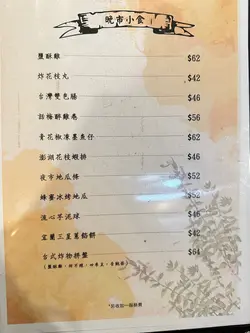 晚市小食
鹽酥雞 $62
炸花枝丸 $42
台灣雙色腸 $46
話梅醉雞卷 $56
青花椒凍墨魚仔 $62
澎湖花枝蝦排 $46
夜市地瓜條 $52
蜂蜜冰烤地瓜 $52
流心芋泥球 $46
宜蘭三星蔥餡餅 $42
台式炸物拼盤 $64